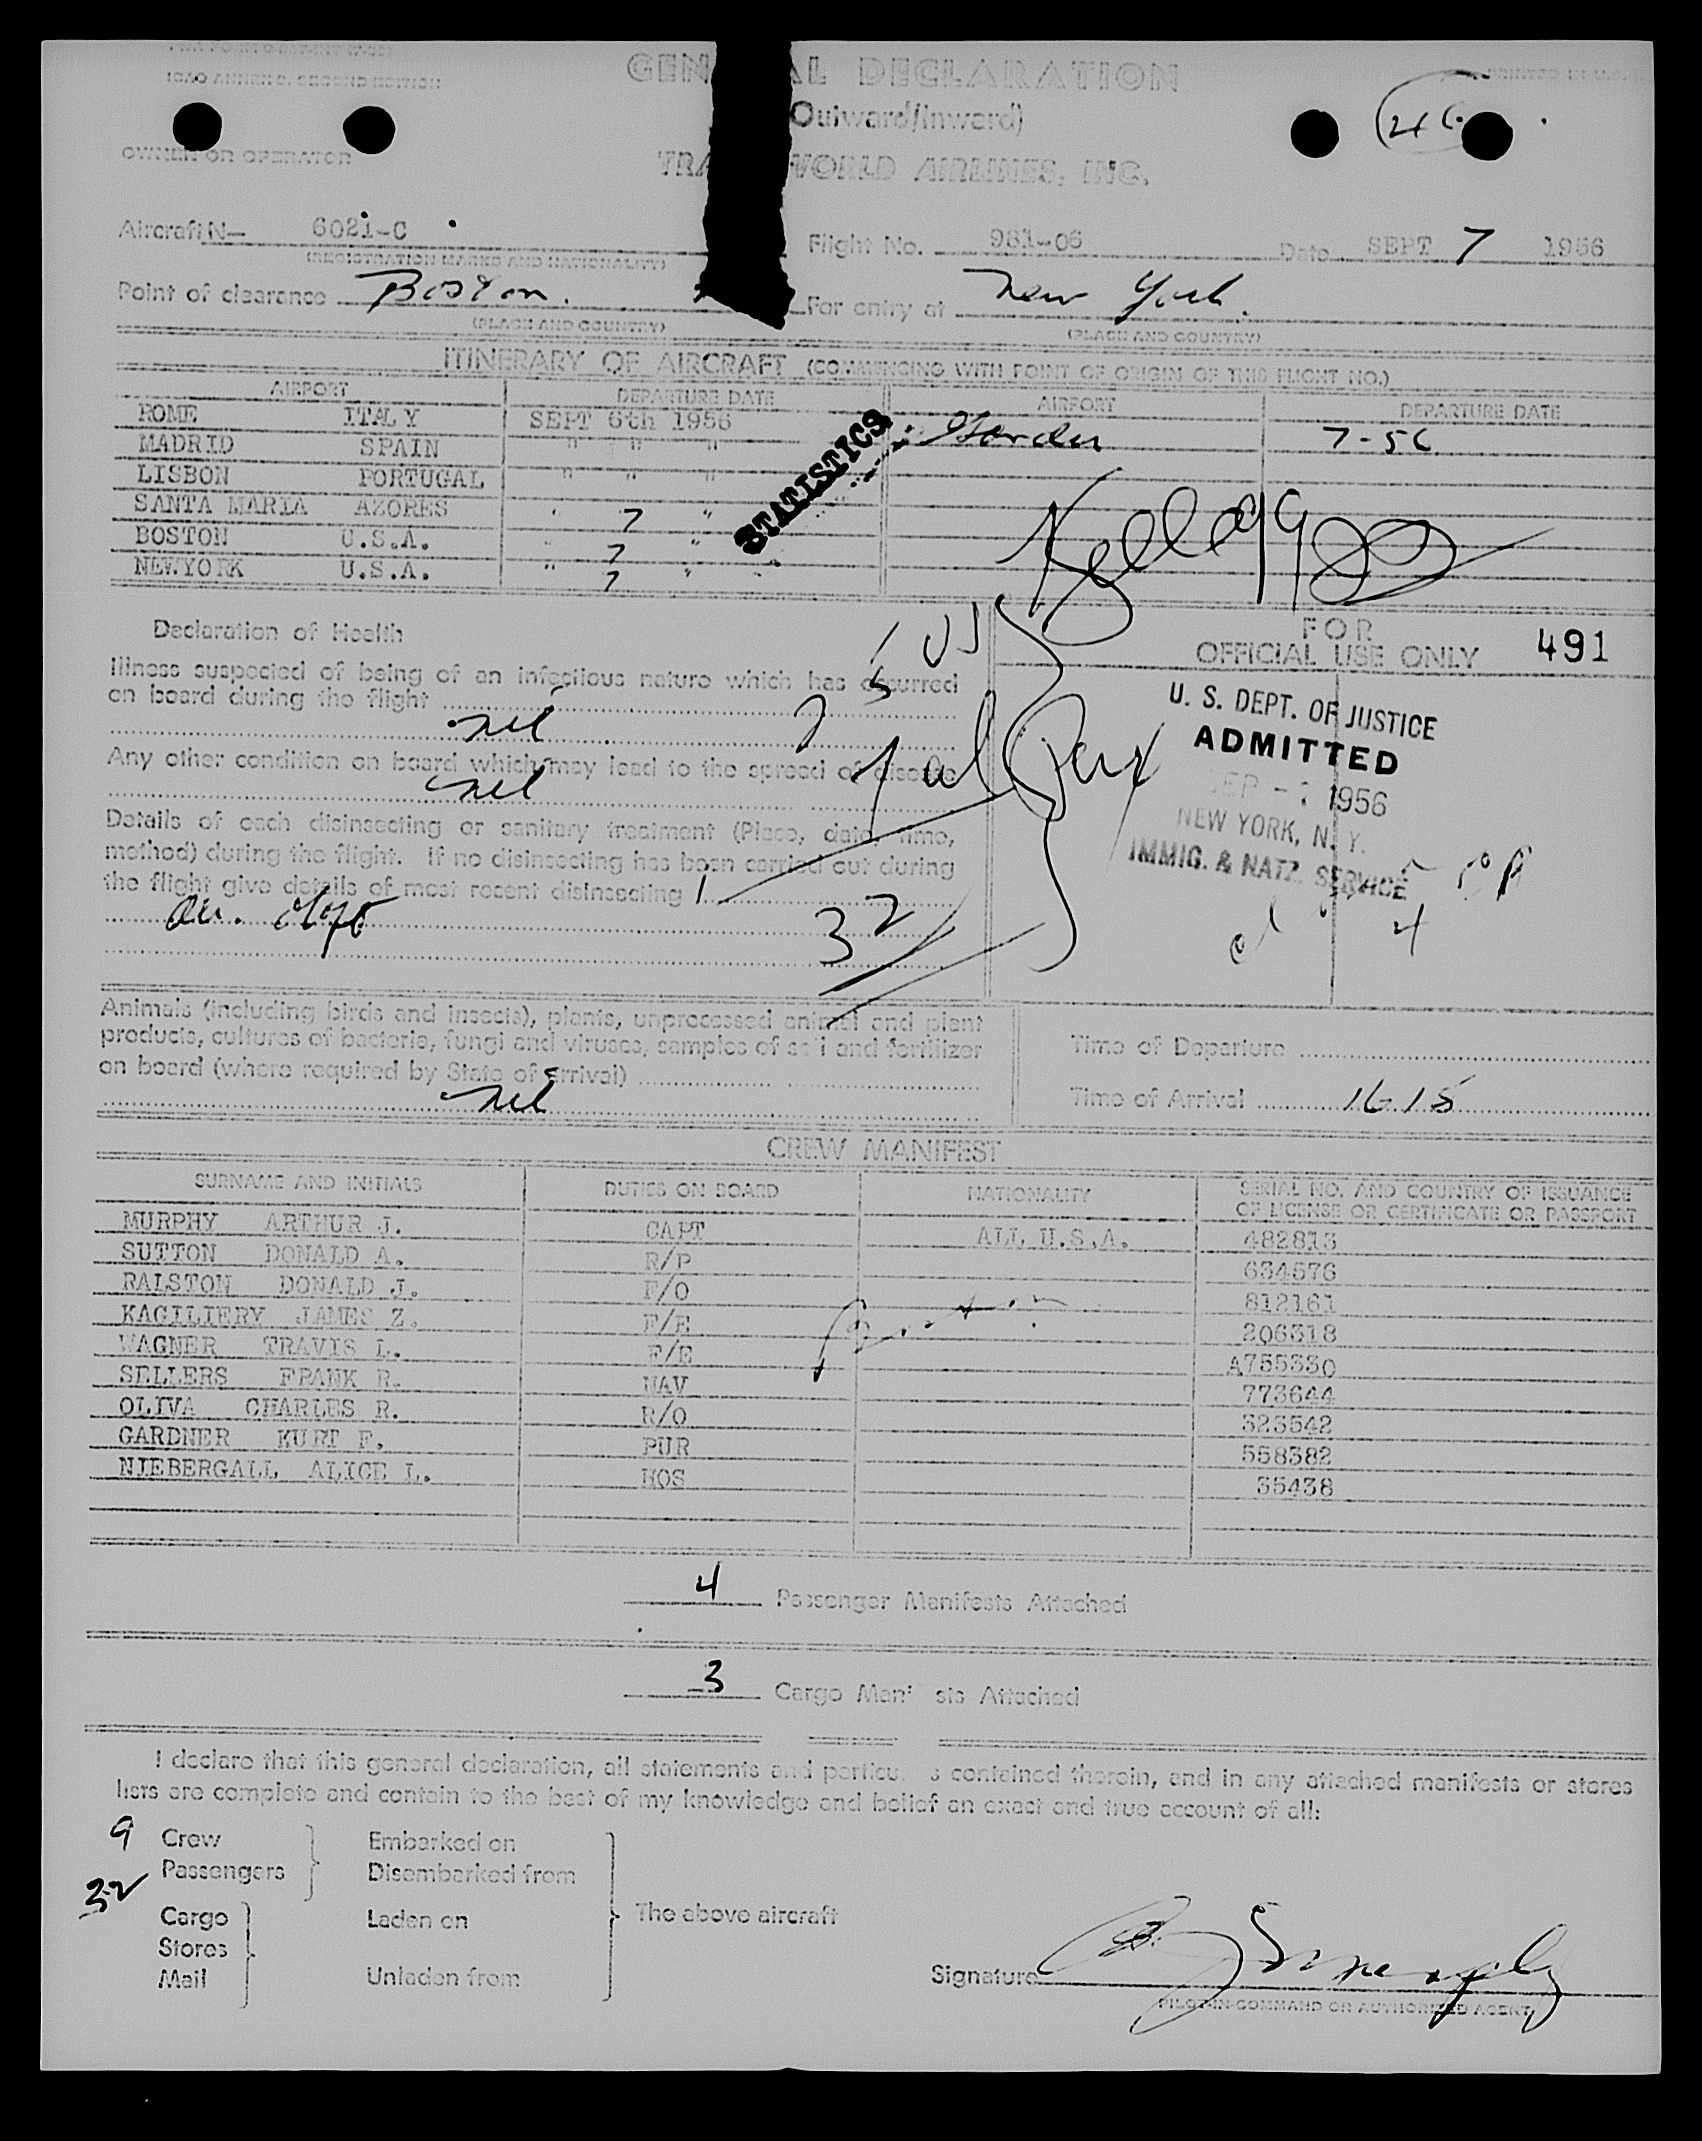 ICAO ANNEX 9, SECOND EDITION
GENERAL DECLARATION
(Outward/Inward)
OWNER OR OPERATOR
TRANS WORLD AIRLINES, INC.
Aircraft N— 6021-C Flight No. 961-06 Date SEPT 7 1956
(REGISTRATION MARKS AND NATIONALITY)
Point of clearance Boston. For entry at New York.
(PLACE AND COUNTRY) (PLACE AND COUNTRY)
ITINERARY OF AIRCRAFT (COMMENCING WITH POINT OF ORIGIN OF THIS FLIGHT NO.)
AIRPORT DEPARTURE DATE AIRPORT DEPARTURE DATE
ROME ITALY SEPT 6th 1956 7-56
MADRID SPAIN " " "
LISBON PORTUGAL " " "
SANTA MARIA AZORES " 7 "
BOSTON U.S.A. " 7 "
NEWYORK U.S.A. " 7 "
STATISTICS
Kellogg
Declaration of Health
FOR
OFFICIAL USE ONLY 491
Illness suspected of being of an infectious nature which has occurred
on board during the flight
nil
Any other condition on board which may lead to the spread of disease
nil
Details of each disinsecting or sanitary treatment (Place, date, time,
method) during the flight. If no disinsecting has been carried out during
the flight give details of most recent disinsecting
32
U. S. DEPT. OF JUSTICE
ADMITTED
SEP - 7 1956
NEW YORK, N. Y.
IMMIG. & NATZ. SERVICE
4
Animals (including birds and insects), plants, unprocessed animal and plant
products, cultures of bacteria, fungi and viruses, samples of soil and fertilizer
on board (where required by State of arrival)
nil
Time of Departure
Time of Arrival 1615
CREW MANIFEST
SURNAME AND INITIALS DUTIES ON BOARD NATIONALITY SERIAL NO. AND COUNTRY OF ISSUANCE
OF LICENSE OR CERTIFICATE OR PASSPORT
MURPHY ARTHUR J. CAPT ALL U.S.A. 482813
SUTTON DONALD A. R/P 634576
RALSTON DONALD J. F/O 812161
KAGILIERY JAMES Z. F/E 206318
WAGNER TRAVIS L. F/E A755330
SELLERS FRANK R. NAV 773644
OLIVA CHARLES R. R/O 323542
GARDNER KURT F. PUR 558382
NIEBERGALL ALICE L. HOS 35438
4 Passenger Manifests Attached
3 Cargo Manifests Attached
I declare that this general declaration, all statements and particulars contained therein, and in any attached manifests or stores
lists are complete and contain to the best of my knowledge and belief an exact and true account of all:
9 Crew Embarked on
32 Passengers Disembarked from
Cargo Laden on The above aircraft
Stores
Mail Unladen from
Signature
PILOT-IN-COMMAND OR AUTHORIZED AGENT